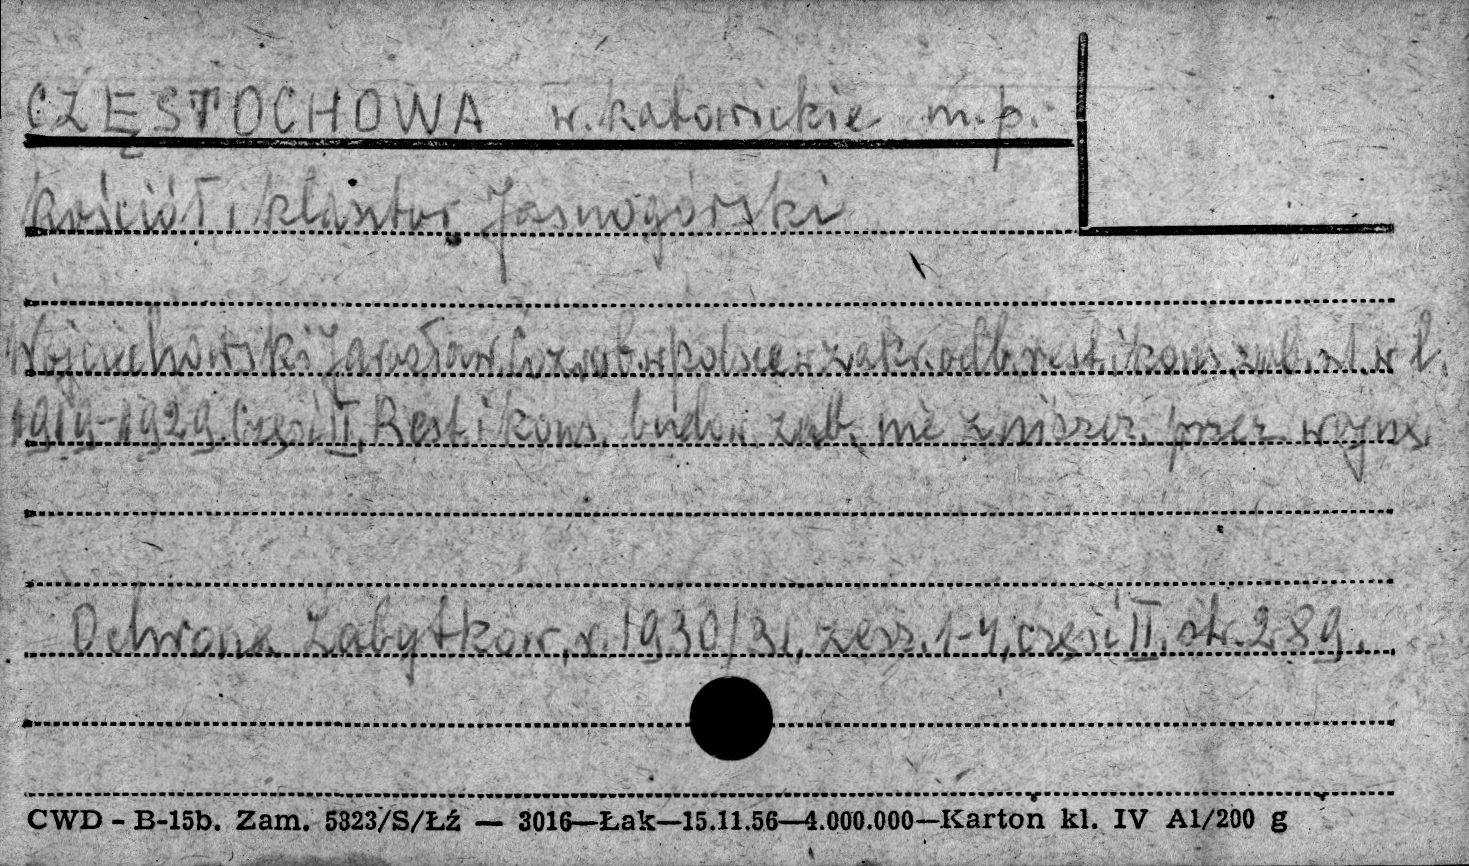 CZĘSTOCHOWA w. katowickie m.p.
kościół i klasztor Jasnogórski
Wojciechowski Jarosław. Co zrob. w Polsce w zakr. odb. rest. i kons. zab. szt. w l.
1919-1929. Część II. Rest. i kons. budow. zab. nie zniszcz. przez wojnę.
Ochrona Zabytków, r. 1930/31, zesz. 1-4, część II, str. 289.
CWD - B-15b. Zam. 5323/S/Łź — 3016—Łak—15.11.56—4.000.000—Karton kl. IV A1/200 g